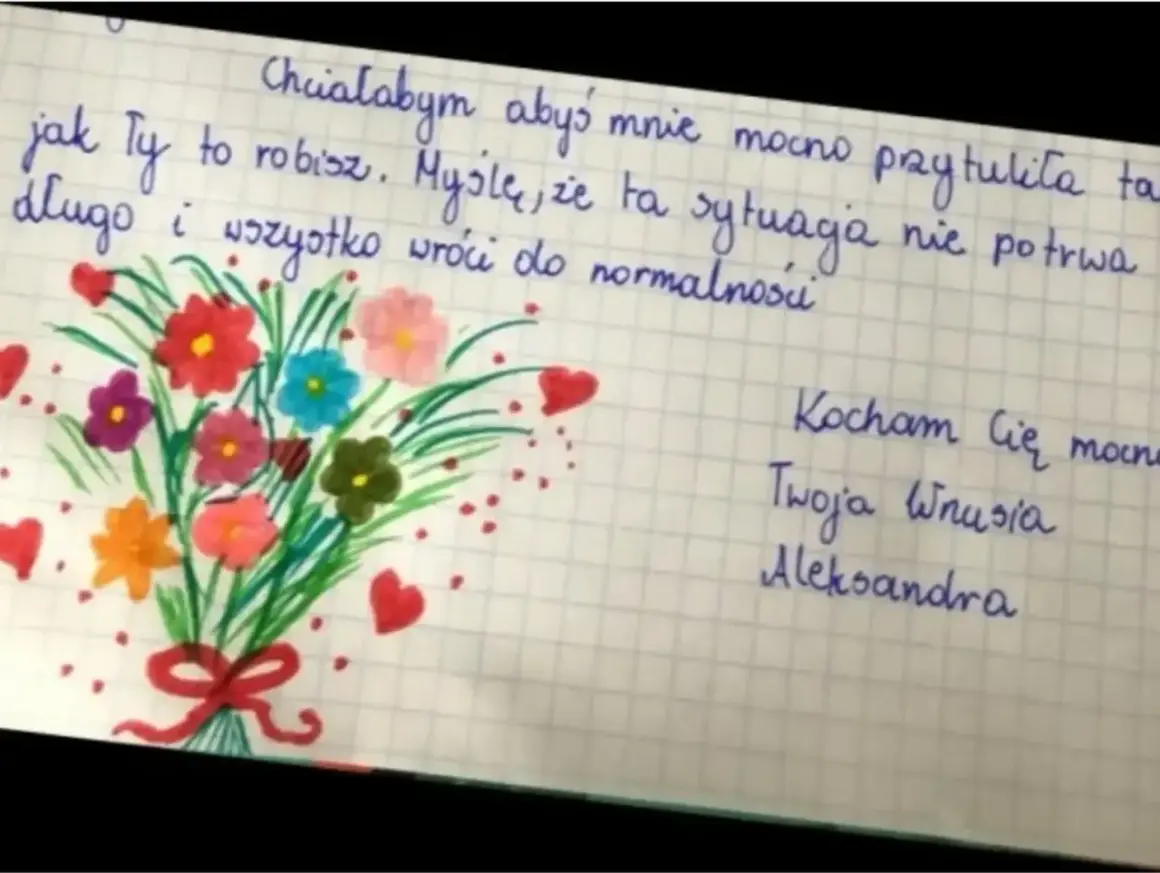 Chciałabym abyś mnie mocno przytuliła ta
jak Ty to robisz. Myślę, że ta sytuacja nie potrwa
długo i wszystko wróci do normalności
Kocham Cię mocno
Twoja Wnusia
Aleksandra